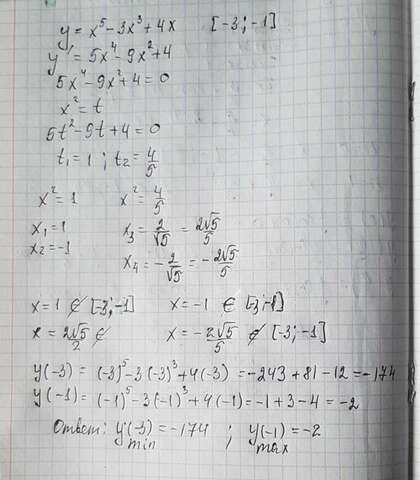 y = x⁵ - 3x³ + 4x [-3; -1]
y' = 5x⁴ - 9x² + 4
5x⁴ - 9x² + 4 = 0
x² = t
5t² - 9t + 4 = 0
t₁ = 1 ; t₂ = 4/5
x² = 1 x² = 4/5
x₁ = 1 x₃ = 2/√5 = 2√5/5
x₂ = -1
x₄ = -2/√5 = -2√5/5
x = 1 ∉ [-3; -1] x = -1 ∈ [-3; -1]
x = 2√5/2 ∉ x = -2√5/5 ∉ [-3; -1]
y(-3) = (-3)⁵ - 3·(-3)³ + 4(-3) = -243 + 81 - 12 = -174
y(-1) = (-1)⁵ - 3(-1)³ + 4(-1) = -1 + 3 - 4 = -2
Ответ: y(-3) = -174 ; y(-1) = -2
min max